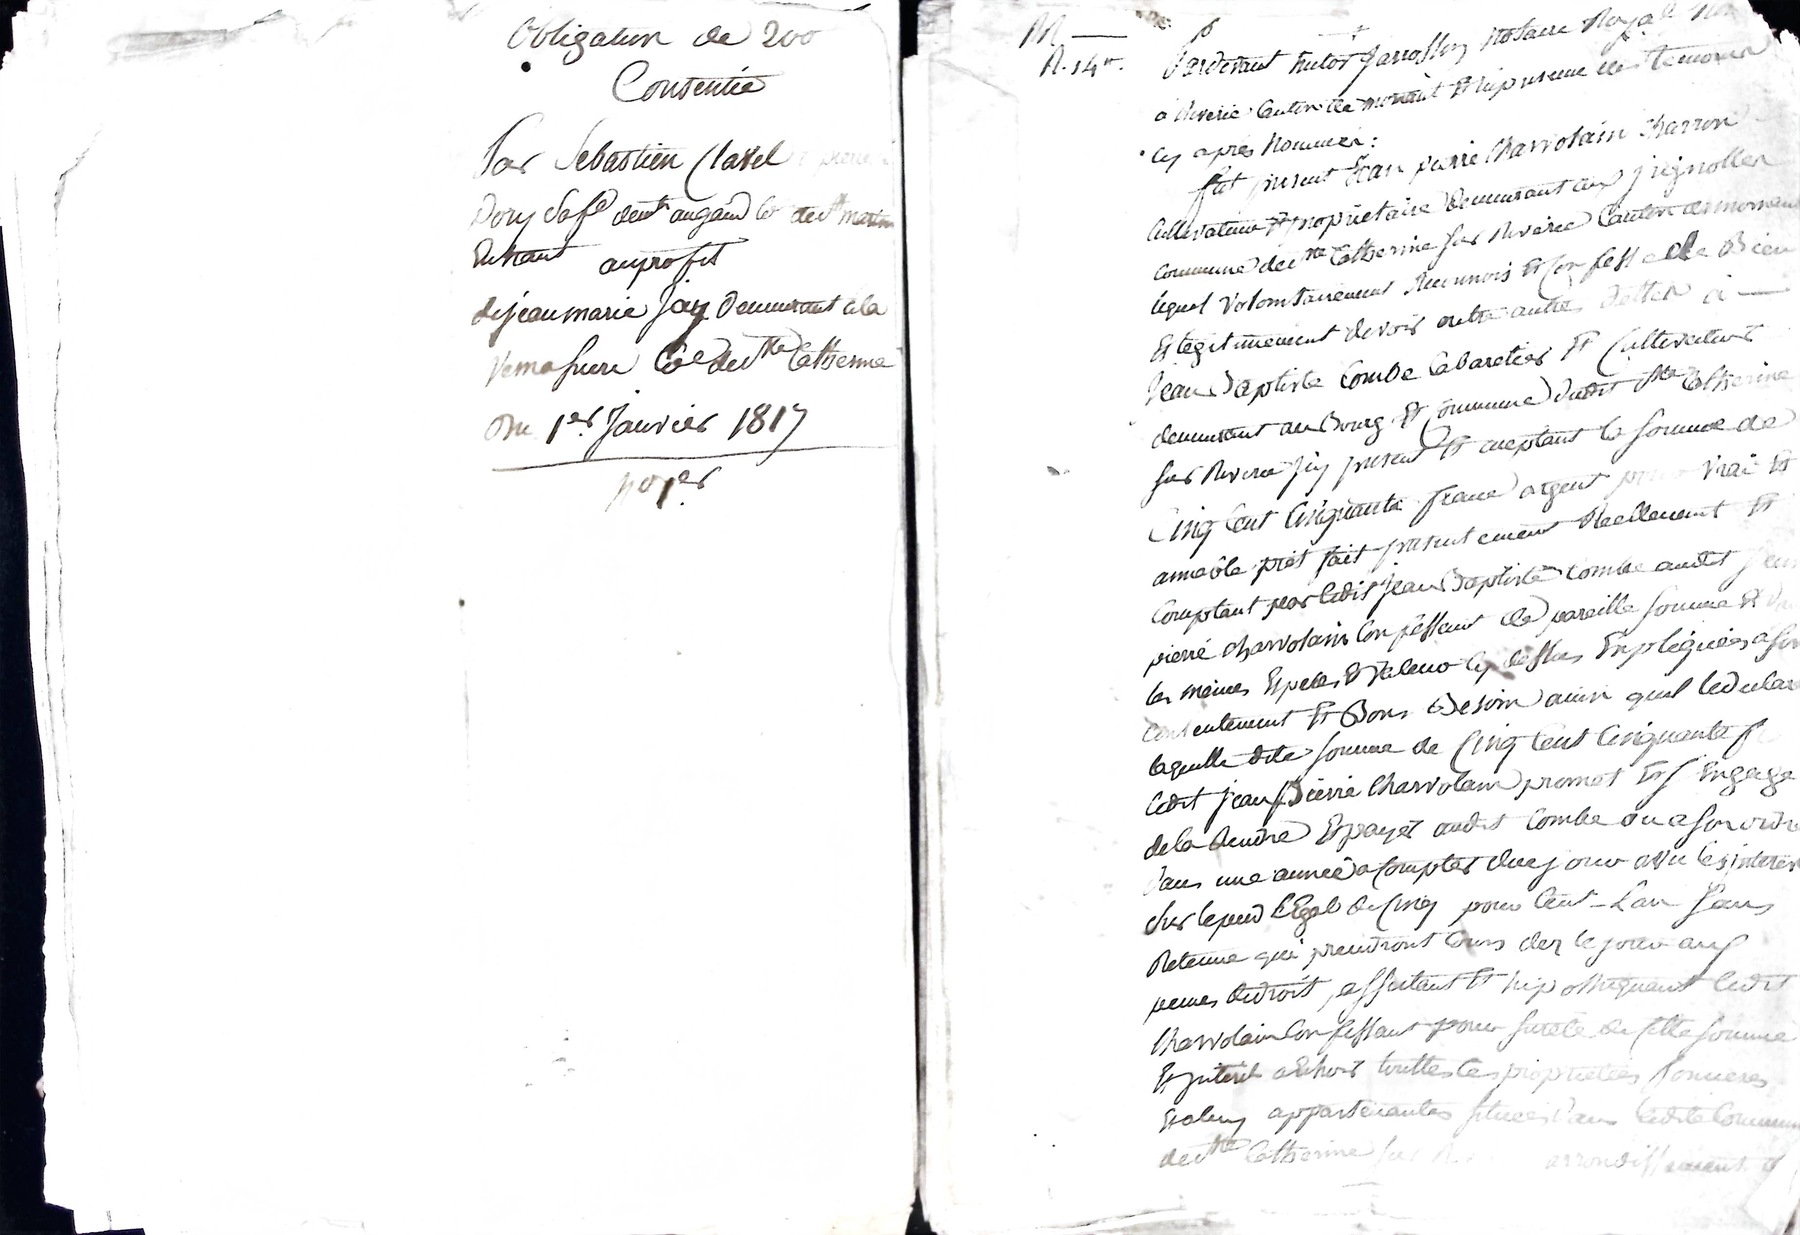 Obligation de 200
Consentie
Par Sebastien Clavel
Dory demt augand
Durant auprofit
de jean marie Jay Demeurant ala
Ce de Ste Catherine
Du 1er Janvier 1817
Pardevant Notaire Royal
a Riverie Canton de mornant Et En presence des temoins
Cy après Nommés :
fut present Jean pierre Charvolain Charron
Cultivateur Et proprietaire demeurant aux
Commune de Ste Catherine sur Riverie Canton de mornant
lequel volontairement Reconnois Et Confesse de Bien
Et legitimement devoir outre autres dettes à —
Jean Baptiste Combe Cabaretier Et Cultivateur
demeurant au Bourg Et Commune dudit Ste Catherine
sur Riverie present Et aceptant la somme de
Cinq Cent Cinquante franc argent pour vrai Et
amiable prêt fait presentement Reellement Et
Comptant par ledit Jean Baptiste Combe audit Jean
pierre Charvolain Confessant de pareille somme Et
les mêmes Especes Et Valeur Cy dessus Employées a son
Consentement Et Bons Besoin ainsi quil le declare
laquelle dite somme de Cinq Cent Cinquante f
ledit Jean Pierre Charvolain promet Et s'Engage
de la Rendre Et payer audit Combe ou a son ordre
dans une année a Compter de ce jour avec les interets
sur le pied légal de Cinq pour Cent L'an sans
Retenue qui prendront Cours dez ce jour aux
peines de droit, affectant Et hipothequant ledit
Charvolain Confessant pour sureté de cette somme
Et interet a Echoir touttes les proprietées foncieres
appartenantes situées dans ladite Commune
de Ste Catherine sur arrondissement